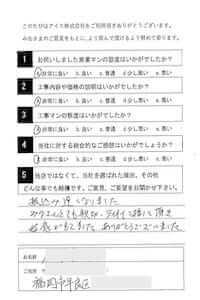 このたびはアイズ株式会社をご利用頂きありがとうございます。
みなさまのご意見をもとに、より良んで頂けるよう努めて参ります。
1 お伺いしました営業マンの態度はいかがでしたか?
①非常に良い ②良い ③普通 ④少し悪い ⑤悪い
2 工事内容や価格の説明はいかがでしたか?
①非常に良い ②良い ③普通 ④少し悪い ⑤悪い
3 工事マンの態度はいかがでしたか?
①非常に良い ②良い ③普通 ④少し悪い ⑤悪い
4 当社に対する総合的なご感想はいかがでしたか?
①非常に良い ②良い ③普通 ④少し悪い ⑤悪い
5 他店ではなくて、当社を選ばれた理由、その他
どんな事でも結構です。ご意見、ご要望をお聞かせ下さい。
振込が遅くなりました
とても親切、
ありがとうございました
お名前
ご住所
福岡市早良区